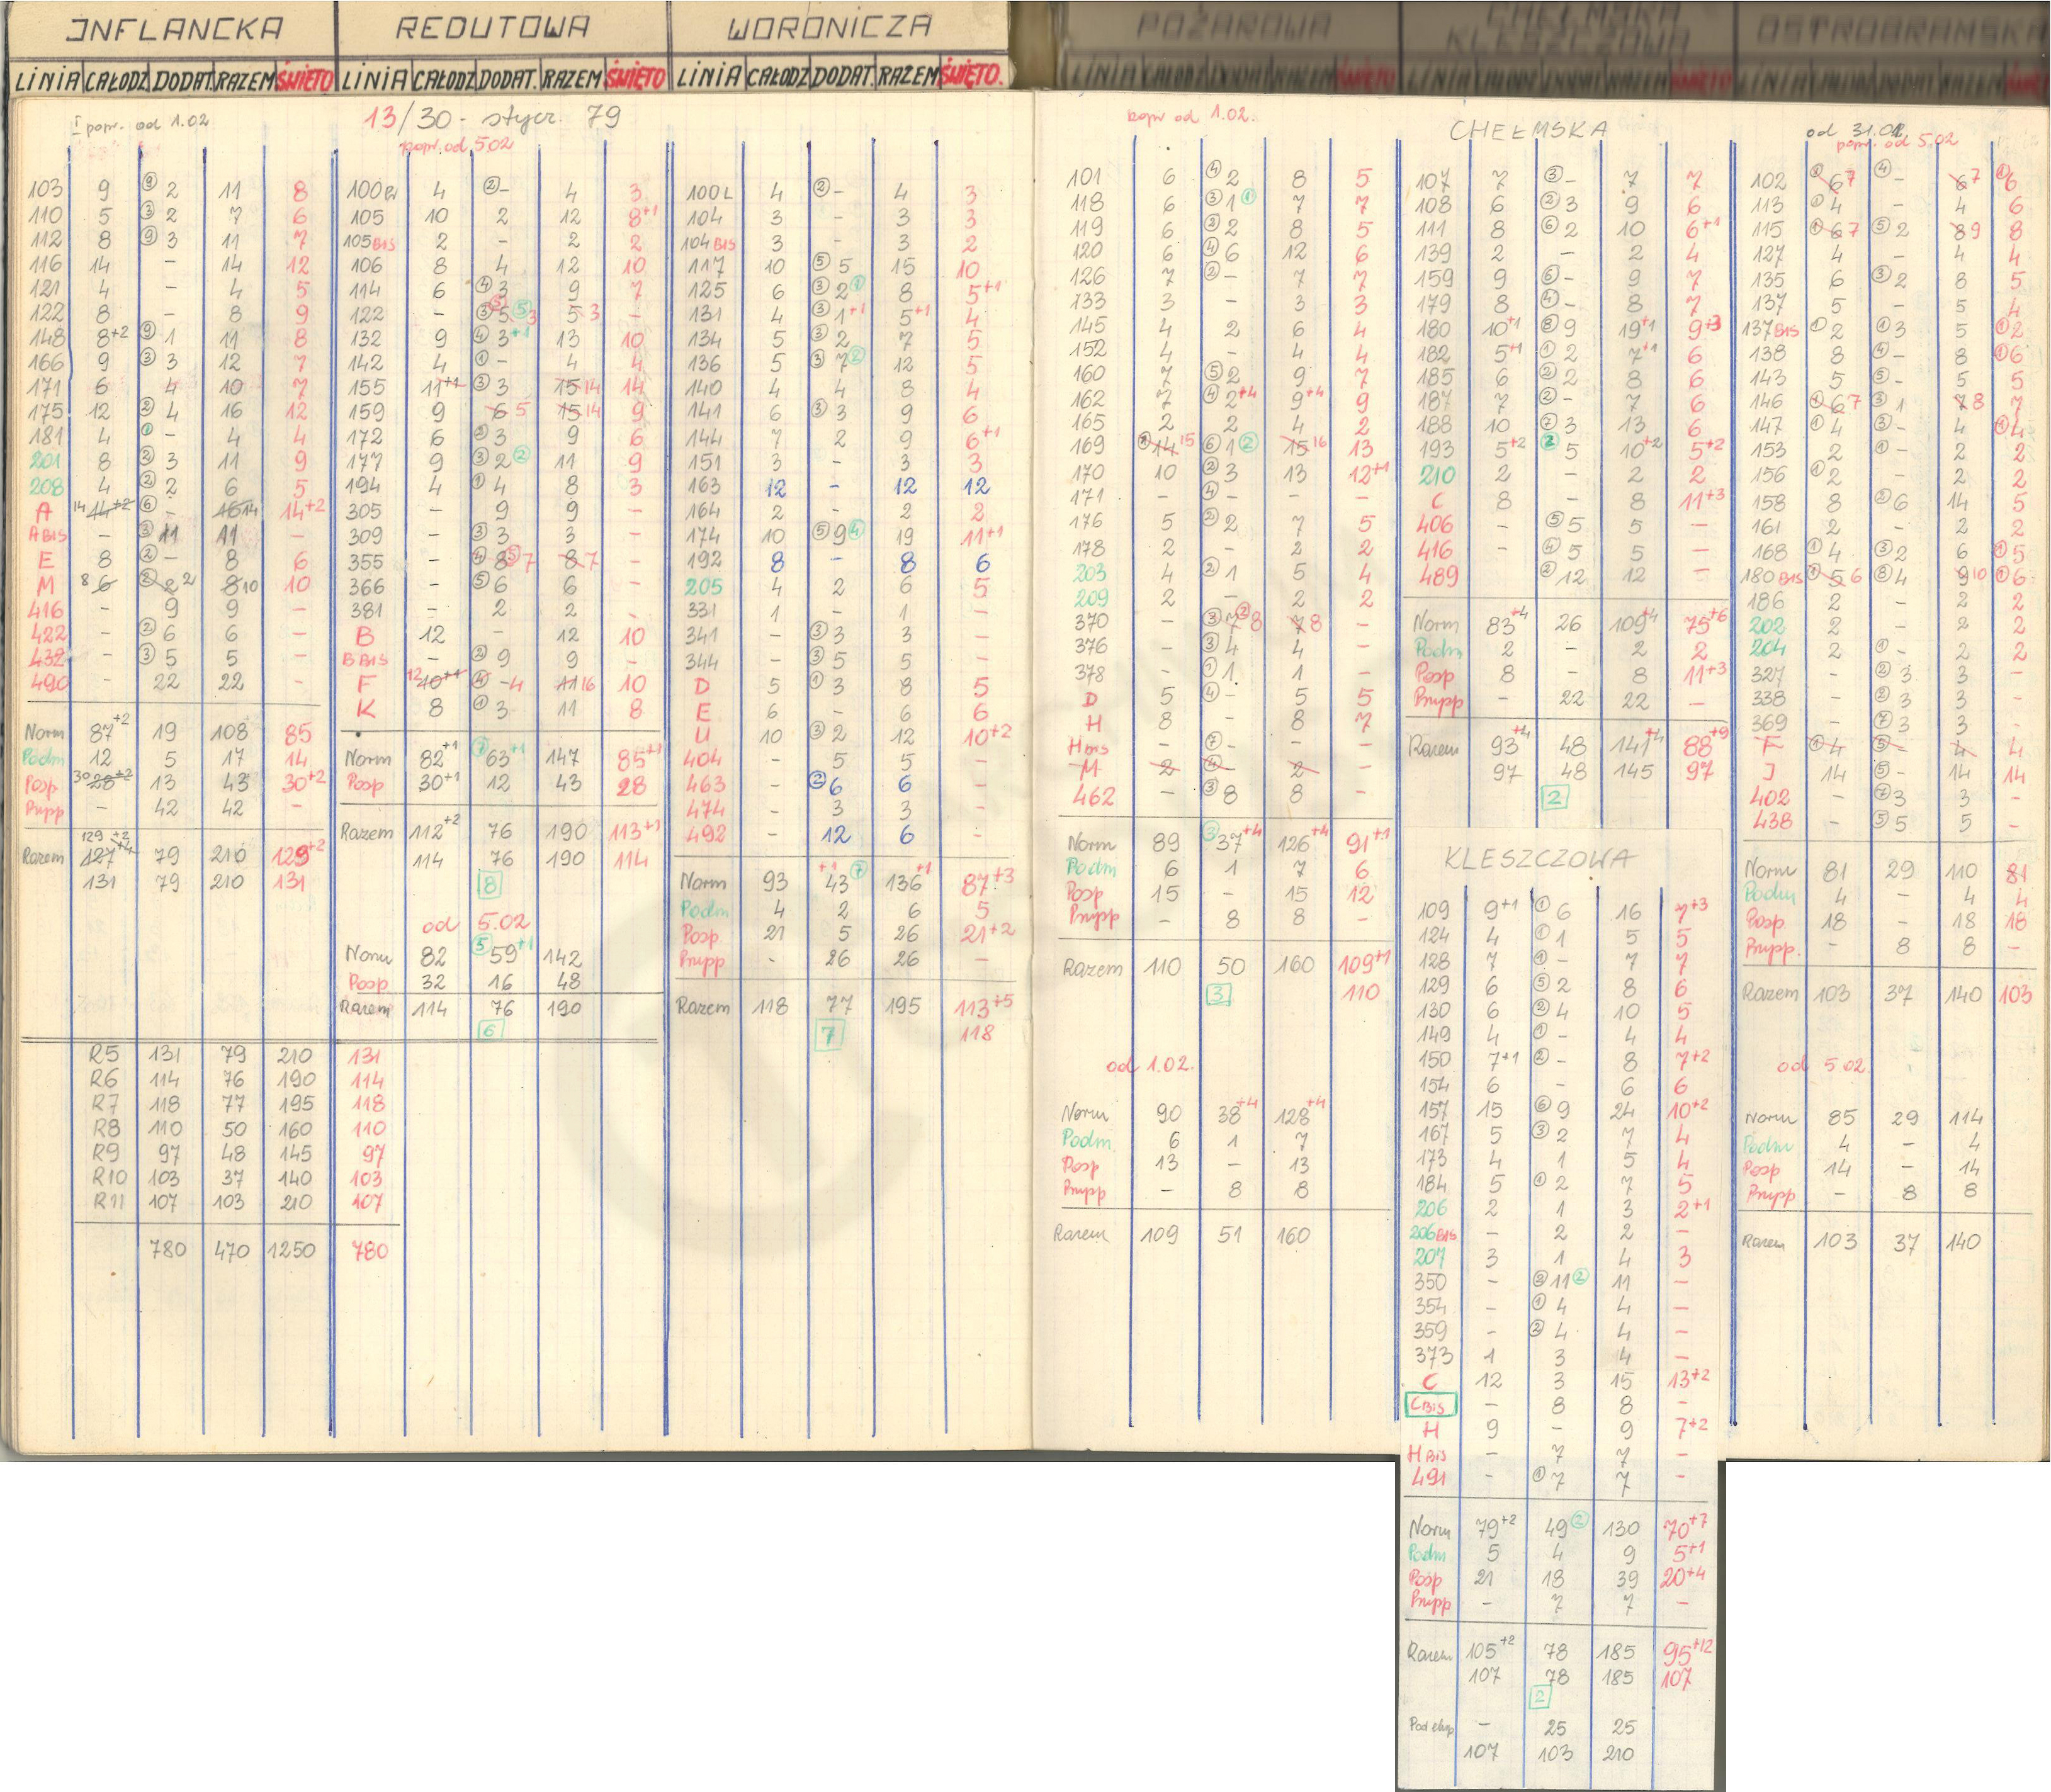 INFLANCKA
LINIA CAŁODZ DODAT. RAZEM ŚWIĘTO
I popr. od 1.02
103 9 ⑨ 2 11 8
110 5 ③ 2 7 6
112 8 ⑨ 3 11 7
116 14 – 14 12
121 4 – 4 5
122 8 – 8 9
148 8+2 ⑨ 1 11 8
166 9 ③ 3 12 7
171 6 4 10 7
175 12 ② 4 16 12
181 4 ① – 4 4
201 8 ② 3 11 9
208 4 ② 2 6 5
A 14 14+2 ⑥ – 16 14 14+2
A BIS – ③ 11 11 –
E 8 ② – 8 6
M 8 6 ② 2 2 8 10 10
416 – 9 9 –
422 – ② 6 6 –
432 – ③ 5 5 –
490 – 22 22 –
Norm 87+2 19 108 85
Podm 12 5 17 14
Posp 30 28+2 13 43 30+2
Prupp – 42 42 –
129+2
Razem 127+4 79 210 129+2
131 79 210 131
R5 131 79 210 131
R6 114 76 190 114
R7 118 77 195 118
R8 110 50 160 110
R9 97 48 145 97
R10 103 37 140 103
R11 107 103 210 107
780 470 1250 780
REDUTOWA
LINIA CAŁODZ DODAT. RAZEM ŚWIĘTO
13/30 - stycz. 79
popr. od 5.02
100 4 ② – 4 3
105 10 2 12 8+1
105 BIS 2 – 2 2
106 8 4 12 10
114 6 ④ 3 9 7
122 – ③ 5 ⑤ ⑤ 3 5 3 –
132 9 ④ 3+1 13 10
142 4 ① – 4 4
155 11+1 ③ 3 15 14 14
159 9 6 5 15 14 9
172 6 ② 3 9 6
177 9 ③ 2 ② 11 9
194 4 ① 4 8 3
305 – 9 9 –
309 – ③ 3 3 –
355 – ④ 8 ⑤ 7 8 7 –
366 – ⑤ 6 6 –
381 – 2 2 –
B 12 – 12 10
B BIS – ② 9 9 –
F 12 10+1 ④ – 4 11 16 10
K 8 ① 3 11 8
Norm 82+1 ⑦ 63+1 147 85+1
Posp 30+1 12 43 28
Razem 112+2 76 190 113+1
114 76 190 114
8
od 5.02
Norm 82 ⑤ 59+1 142
Posp 32 16 48
Razem 114 76 190
6
WORONICZA
LINIA CAŁODZ DODAT. RAZEM ŚWIĘTO.
100L 4 ② – 4 3
104 3 – 3 3
104 BIS 3 – 3 2
117 10 ⑤ 5 15 10
125 6 ③ 2 ① 8 5+1
131 4 ③ 1+1 5+1 4
134 5 ③ 2 7 5
136 5 ③ 7 ② 12 5
140 4 4 8 4
141 6 ③ 3 9 6
144 7 2 9 6+1
151 3 – 3 3
163 12 – 12 12
164 2 – 2 2
174 10 ⑤ 9 ④ 19 11+1
192 8 – 8 6
205 4 2 6 5
331 1 – 1 –
341 – ③ 3 3 –
344 – ③ 5 5 –
D 5 ① 3 8 5
E 6 – 6 6
U 10 ③ 2 12 10+2
404 – 5 5 –
463 – ② 6 6 –
474 – 3 3 –
492 – 12 6 –
Norm 93 43+1 ⑦ 136+1 87+3
Podm 4 2 6 5
Posp 21 5 26 21+2
Prupp - 26 26 –
Razem 118 77 195 113+5
7 118
POŻAROWA
popr od 1.02.
101 6 ④ 2 8 5
118 6 ③ 1 ① 7 7
119 6 ③ 2 8 5
120 6 ④ 6 12 6
126 7 ② – 7 7
133 3 – 3 3
145 4 2 6 4
152 4 – 4 4
160 7 ⑤ 2 9 7
162 7 ④ 2+4 9+4 9
165 2 2 4 2
169 14 15 ⑥ 1 ② 15 16 13
170 10 ② 3 13 12+1
171 – ④ – – –
176 5 ② 2 7 5
178 2 – 2 2
203 4 ② 1 5 4
209 2 – 2 2
370 – ③ 7 ② 8 7 8 –
376 – ③ 4 4 –
378 – ① 1 1 –
D 5 ④ – 5 5
H 8 – 8 7
H BIS – ⑦ – – –
M 2 ④ – 2 –
462 – ③ 8 8 –
Norm 89 ③ 37+4 126+4 91+1
Podm 6 1 7 6
Posp 15 – 15 12
Prupp – 8 8 –
Razem 110 50 160 109+1
3 110
od 1.02.
Norm 90 38+4 128+4
Podm. 6 1 7
Posp 13 – 13
Prupp – 8 8
Razem 109 51 160
CHEŁMSKA
KLESZCZOWA
CHEŁMSKA
107 7 ③ – 7 7
108 6 ② 3 9 6
111 8 ⑥ 2 10 6+1
139 2 – 2 4
159 9 ⑥ – 9 7
179 8 ④ – 8 7
180 10+1 ⑧ 9 19+1 9+3
182 5+1 ① 2 7+1 6
185 6 ② 2 8 6
187 7 ② – 7 6
188 10 ⑦ 3 13 6
193 5+2 ② 5 10+2 5+2
210 2 – 2 2
C 8 – 8 11+3
406 – ⑤ 5 5 –
416 – ④ 5 5 –
489 – ② 12 12 –
Norm 83+4 26 109+4 75+6
Podm 2 – 2 2
Posp 8 – 8 11+3
Prupp – 22 22 –
Razem 93+4 48 141+4 88+9
97 48 145 97
2
KLESZCZOWA
109 9+1 ① 6 16 7+3
124 4 ① 1 5 5
128 7 ① – 7 7
129 6 ⑤ 2 8 6
130 6 ② 4 10 5
149 4 ① – 4 4
150 7+1 ② – 8 7+2
154 6 – 6 6
157 15 ⑥ 9 24 10+2
167 5 ③ 2 7 4
173 4 1 5 4
184 5 ① 2 7 5
206 2 1 3 2+1
206 BIS – 2 2 –
207 3 1 4 3
350 – ③ 11 ② 11 –
354 – ① 4 4 –
359 – ② 4 4 –
373 1 3 4 –
C 12 3 15 13+2
C BIS – 8 8 –
H 9 – 9 7+2
H BIS – 7 7 –
491 - ① 7 7 -
Norm 79+2 49 ② 130 70+7
Podm 5 4 9 5+1
Posp 21 18 39 20+4
Prupp – 7 7 –
Razem 105+2 78 185 95+12
107 78 185 107
2
Pod eksp – 25 25
107 103 210
OSTROBRAMSKA
od 31.01
popr. od 5.02
102 6 7 ④ – 6 7 ① 6
113 ① 4 – 4 6
115 ① 6 7 ⑤ 2 8 9 8
127 4 – 4 4
135 6 ③ 2 8 5
137 5 – 5 4
137 BIS ① 2 ① 3 5 ① 2
138 8 ④ – 8 ① 6
143 5 ⑤ – 5 5
146 ① 6 7 ③ 1 7 8 7
147 ① 4 ③ – 4 ① 4
153 2 ① – 2 2
156 ① 2 – 2 2
158 8 ② 6 14 5
161 2 – 2 2
168 ① 4 ③ 2 6 ① 5
180 BIS ① 5 6 ⑧ 4 9 10 ① 6
186 2 – 2 2
202 2 – 2 2
204 2 ① – 2 2
327 – ② 3 3 –
338 – ② 3 3 –
369 – ⑦ 3 3 –
F ① 4 ⑤ – 4 4
J 14 ⑤ – 14 14
402 – ⑦ 3 3 –
438 – ⑤ 5 5 –
Norm 81 29 110 81
Podm 4 – 4 4
Posp. 18 – 18 18
Prupp. – 8 8 –
Razem 103 37 140 103
od 5.02
Norm 85 29 114
Podm 4 – 4
Posp 14 – 14
Prupp – 8 8
Razem 103 37 140